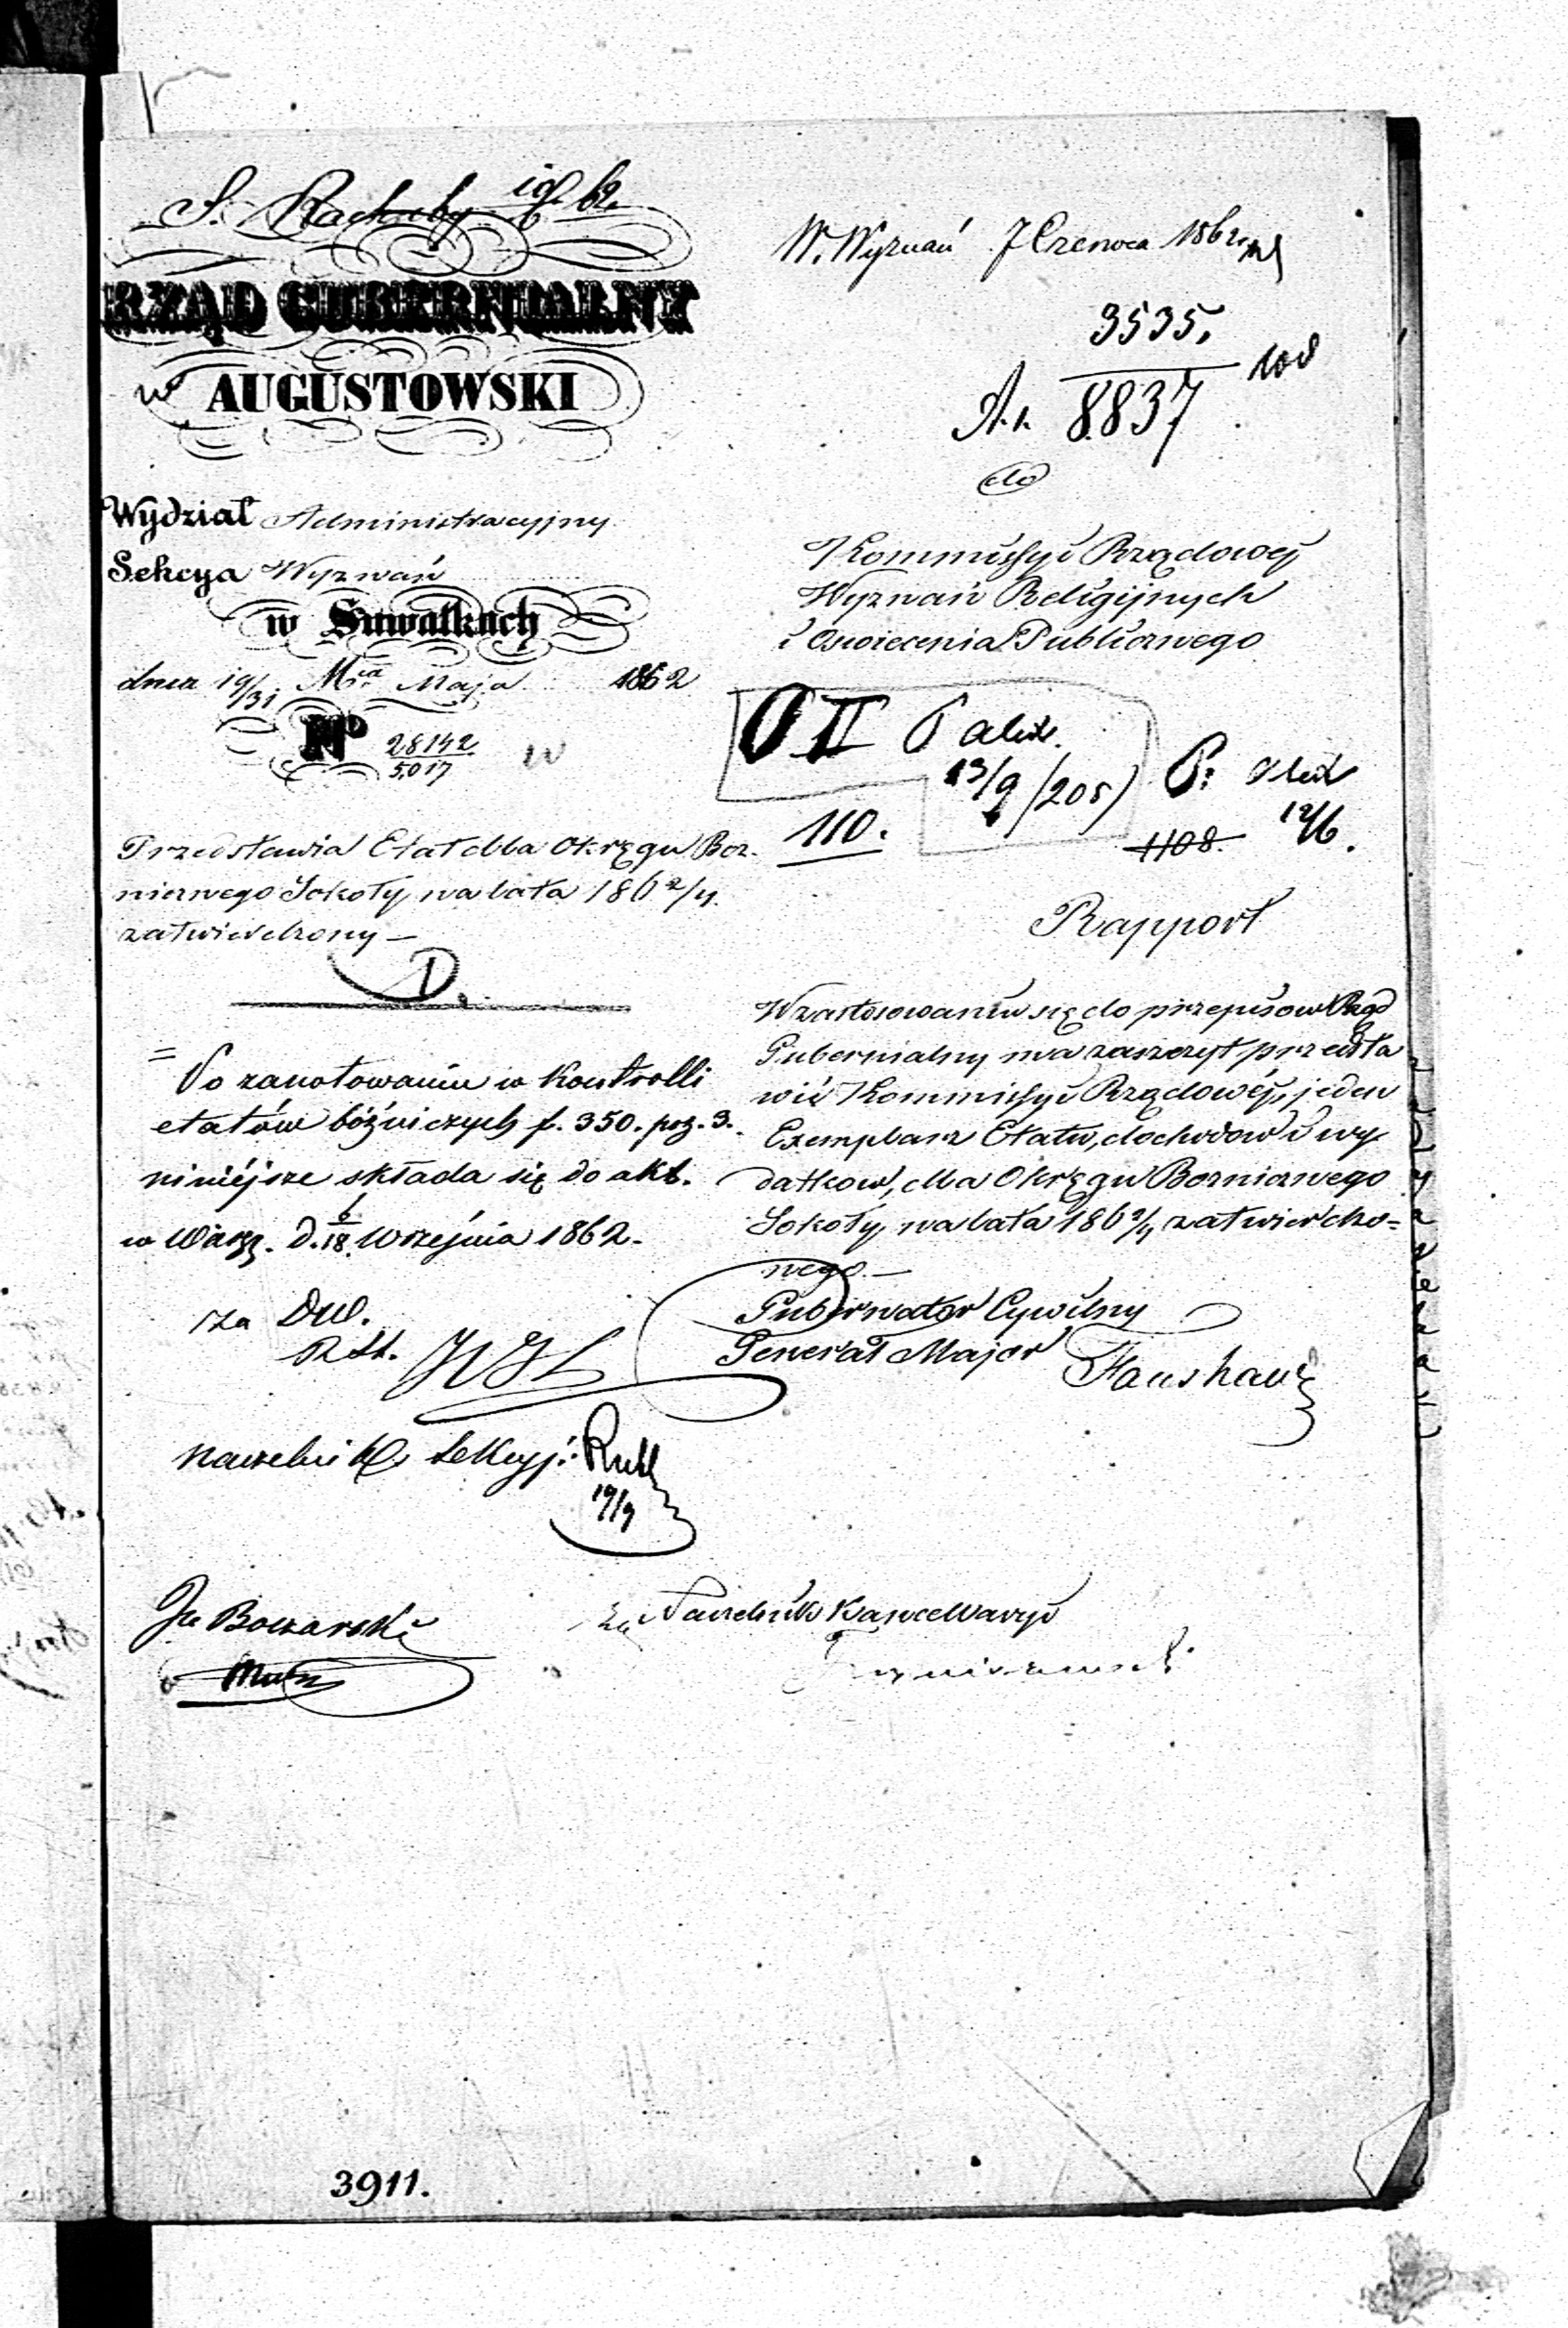 RZĄD GUBERNIALNY
AUGUSTOWSKI
Wydział Administracyjny
Sekcya Wyznań
w Suwałkach
dnia 19/31 Mca Maja 1862
No 28142/5017
Przedstawia Etat dla Okręgu Boż-
nicznego Sokoły, na lata 186 2/4.
zatwierdzony —
= Po zanotowaniu w Kontrolli
etatów bóźniczych f. 350. poz. 3.
niniéjsze składa się do akt.
w Warsz. d. 6/18 Września 1862.
za Dyr.
R.St.
Naczelnik Sekcyi:
19/9
W. Wyznań 7 Czerwca 1862
3535.
8837
108
do
Kommissyi Rządowej
Wyznań Religijnych
i Oswiecenia Publicznego
O II
13/9 /205)
110.
1108.
12/6.
Rapport
W zastosowaniu się do przepisow Rząd
Gubernialny ma zaszczyt przedsta
wić Kommissyi Rządowéj, jeden
Exemplarz Etatu, dochodow i wy
datkow, dla Okręgu Bożnicznego
Sokoły, na lata 186 2/4 zatwierdzo=
nego. —
Gubernator Cywilny
Generał Major
za Naczelnik Kancellaryi
3911.